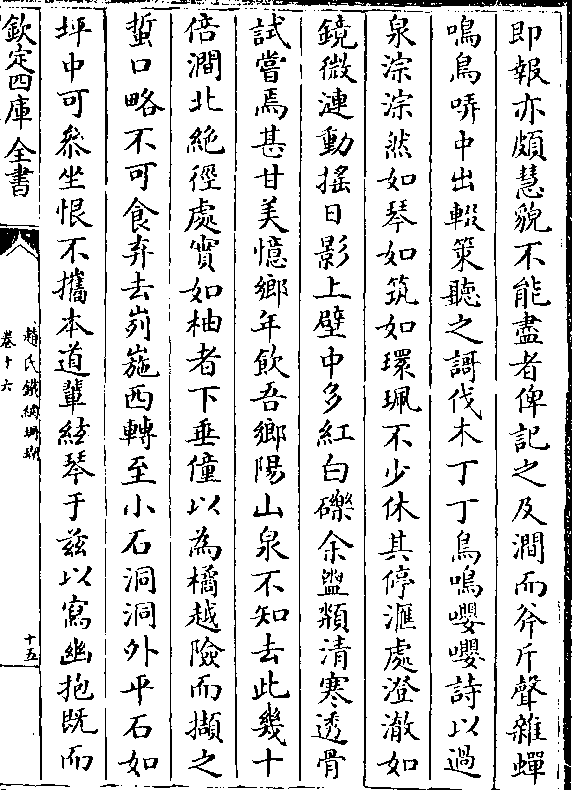 即報亦頗慧貌不能盡者俾記之及澗而斧斤聲雜蟬
鳴鳥哢中出輟策聽之謌伐木丁丁鳥鳴嚶嚶詩以過
泉淙淙然如琴如筑如環珮不少休其停滙處澄澈如
鏡微漣動搖日影上壁中多紅白礫余盥頮清寒透骨
試嘗焉甚甘美憶鄉年飲吾鄉陽山泉不知去此幾十
倍澗北絶徑處實如柚者下垂僮以為橘越險而擷之
蜇口略不可食弃去峛崺西轉至小石洞洞外平石如
坪中可叅坐恨不攜本道輩絃琴于兹以寫幽抱既而
欽定四庫全書
趙氏鐵網珊瑚
卷十六
十五